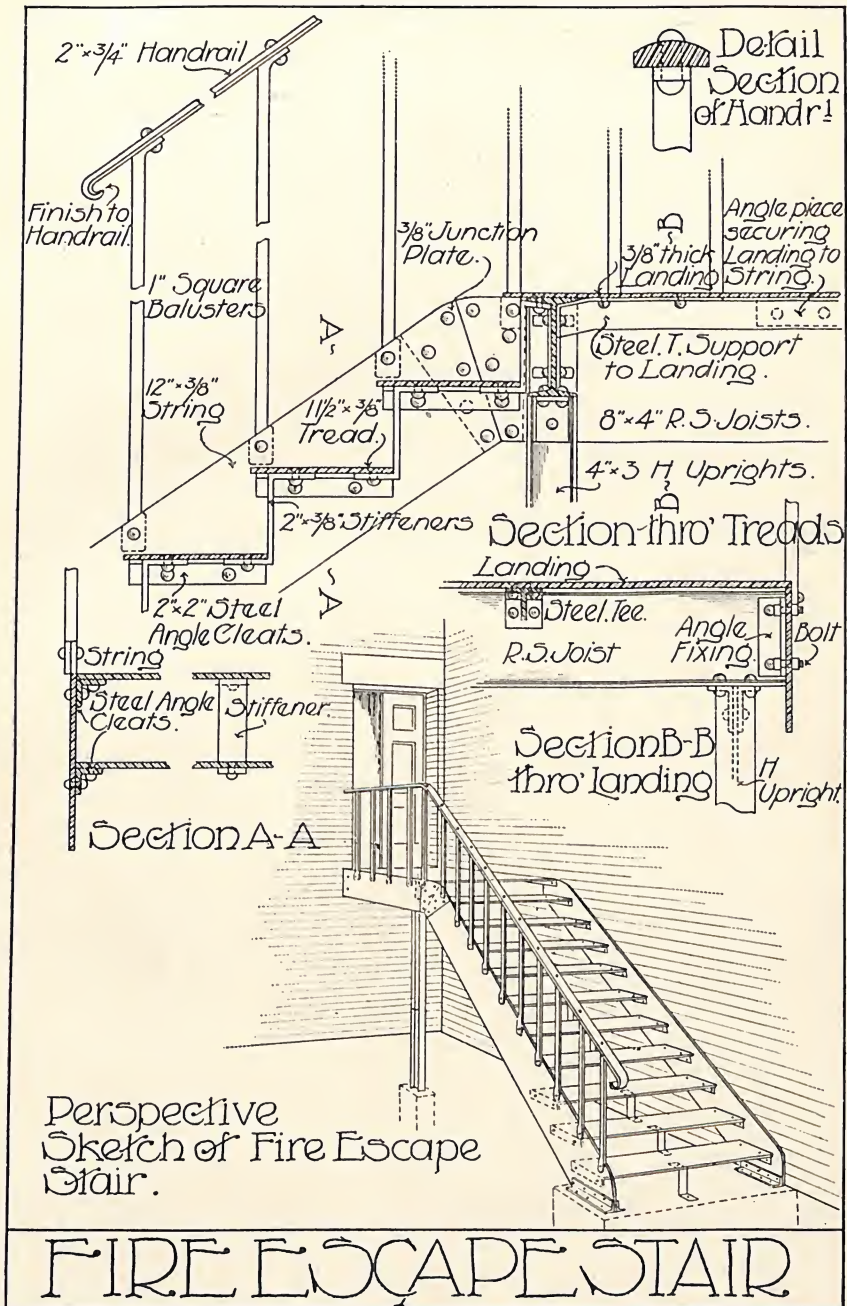 2"×3/4" Handrail
Detail
Section
of Handrl
Finish to
Handrail.
3/8" Junction
Plate.
B
3/8" thick
Landing
Angle piece
securing
Landing to
String.
1" Square
Balusters
A
Steel. T. Support
to Landing.
12"×3/8"
String
11 1/2"×3/8"
Tread.
8"×4" R.S. Joists.
4"×3 H Uprights.
B
2"×3/8" Stiffeners
Section thro' Treads
A
2"×2" Steel
Angle Cleats.
Landing
Steel. Tee.
R.S. Joist
Angle
Fixing.
Bolt
String
Steel Angle
Cleats.
Stiffener.
Section B-B
thro' Landing
H
Upright.
Section A-A
Perspective
Sketch of Fire Escape
Stair.
FIRE ESCAPE STAIR